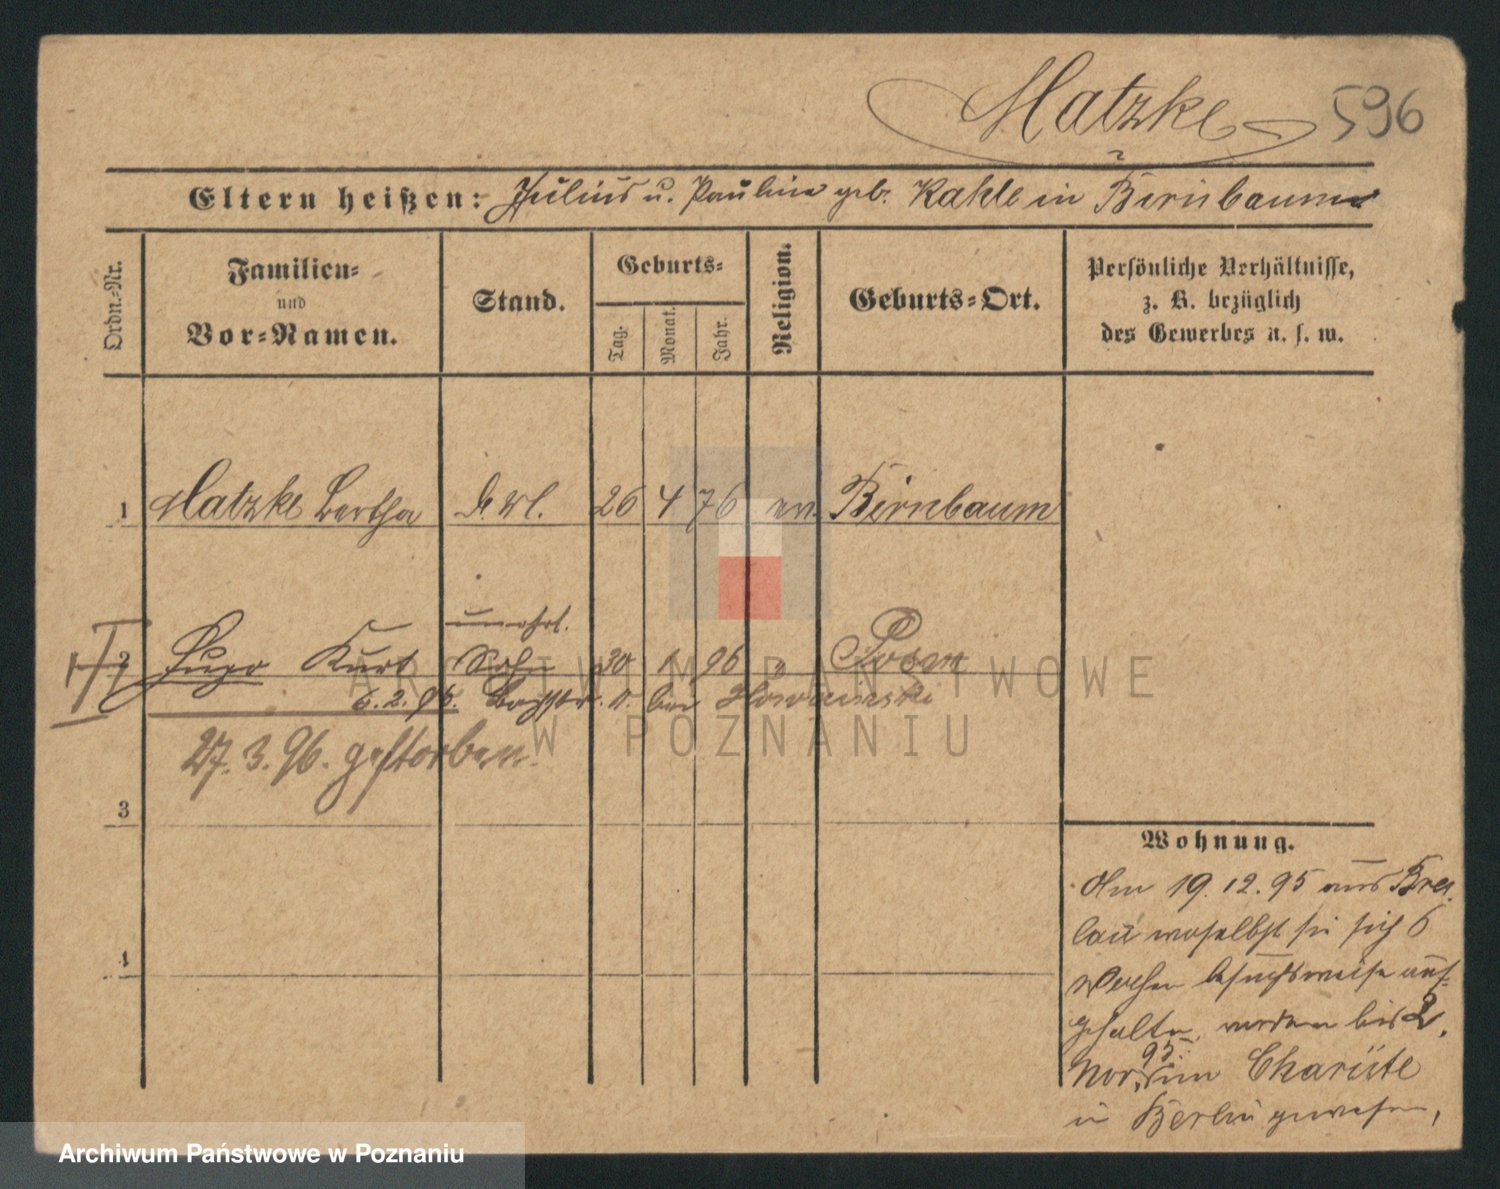 Matzke 596
Eltern heißen: Julius u. Pauline geb. Kahle in Birnbaum
Ordn.-Nr.
Familien-
und
Vor-Namen.
Stand.
Geburts-
Tag.
Monat.
Jahr.
Religion.
Geburts-Ort.
Persönliche Verhältnisse,
z. B. bezüglich
des Gewerbes u. s. w.
1 Matzke Bertha 26 4 76 ev. Birnbaum
unehel.
2 Hugo Kurt Sohn 30 1 96 " Posen
6.2.96. bei
27.3.96. gestorben.
3
4
Wohnung.
Am 19.12.95 aus Bres-
lau woselbst sie sich 6
Wochen besuchsweise auf-
gehalten, vordem bis 2.
95
Nov. im Charitte
in Berlin gewesen,
ARCHIWUM PAŃSTWOWE
W POZNANIU
Archiwum Państwowe w Poznaniu